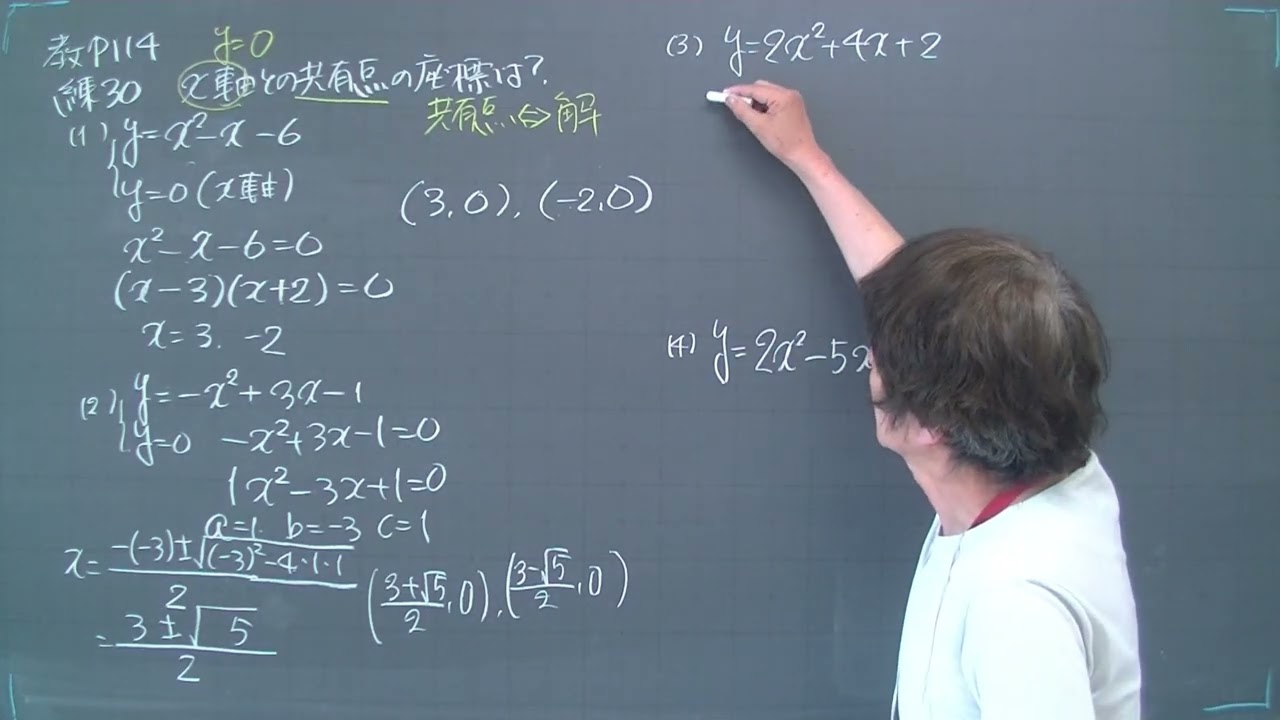 教P114
y=0
練30 x軸との共有点の座標は?
共有点⇔解
(1) y=x²-x-6
y=0(x軸)
x²-x-6=0
(x-3)(x+2)=0
x=3. -2
(3,0), (-2,0)
(2) y=-x²+3x-1
y=0 -x²+3x-1=0
1x²-3x+1=0
a=1. b=-3 c=1
x=\frac{-(-3)±\sqrt{(-3)²-4·1·1}}{2}
=\frac{3±\sqrt{5}}{2}
(\frac{3+\sqrt{5}}{2},0), (\frac{3-\sqrt{5}}{2},0)
(3) y=2x²+4x+2
(4) y=2x²-5x